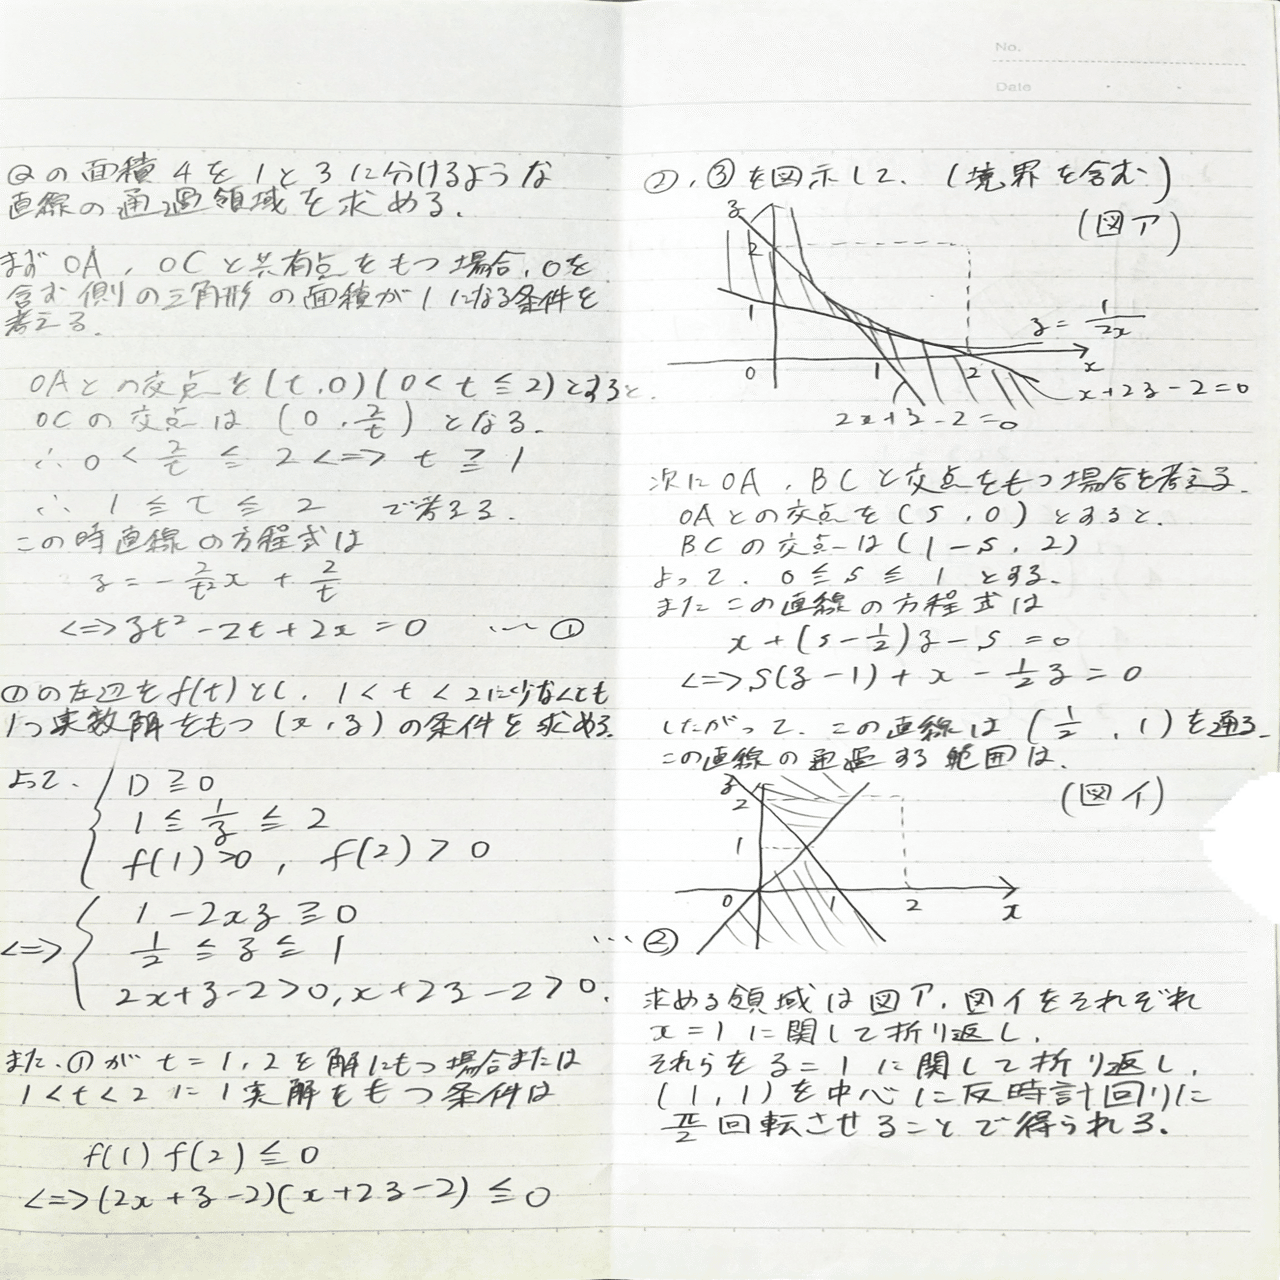 Qの面積4を1と3に分けるような
直線の通過領域を求める.
まずOA, OCと共有点をもつ場合, Oを
含む側の三角形の面積が1になる条件を
考える.
OAとの交点を(t,0)(0<t≦2)とすると.
OCの交点は(0, 2/t)となる.
∴0 < 2/t ≦ 2 <=> t ≧ 1
∴ 1 ≦ t ≦ 2 で考える.
この時直線の方程式は
y = -2/t² x + 2/t
<=> yt² - 2t + 2x = 0 … ①
①の左辺をf(t)とし, 1 < t < 2に少なくとも
1つ実数解をもつ(x, y)の条件を求める.
よって.
D ≧ 0
1 ≦ 1/y ≦ 2
f(1)>0, f(2) > 0
<=>
1 - 2xy ≧ 0
1/2 ≦ y ≦ 1
2x+y-2>0, x+2y-2>0. … ②
また, ①がt=1, 2を解にもつ場合または
1<t<2に1実解をもつ条件は
f(1) f(2) ≦ 0
<=> (2x+y-2)(x+2y-2) ≦ 0
No.
Date
②, ③を図示して. (境界を含む)
(図ア)
y
2
1
0
1
2
x
y = 1/2x
x+2y-2=0
2x+y-2=0
次にOA, BCと交点をもつ場合を考える.
OAとの交点を(s, 0)とすると.
BCの交点は(1-s, 2)
よって. 0 ≦ s ≦ 1 とする.
またこの直線の方程式は
x + (s - 1/2)y - s = 0
<=> s(y-1) + x - 1/2 y = 0
したがって, この直線は(1/2, 1)を通る.
この直線の通過する範囲は.
(図イ)
y
2
1
0
1
2
x
求める領域は図ア, 図イをそれぞれ
x=1に関して折り返し,
それらをy=1に関して折り返し,
(1,1)を中心に反時計回りに
π/2 回転させることで得られる.